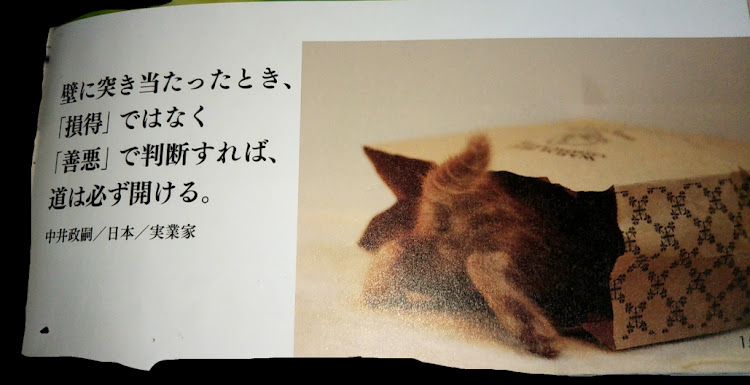 壁に突き当たったとき、
「損得」ではなく
「善悪」で判断すれば、
道は必ず開ける。
中井政嗣／日本／実業家